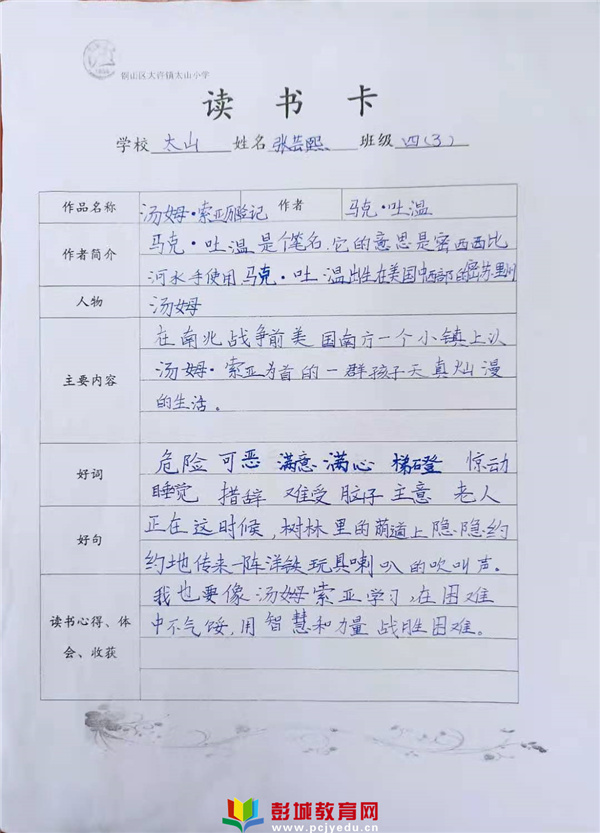 铜山区大许镇太山小学
读书卡
学校 太山 姓名 张芸熙 班级 四(3)
作品名称 汤姆·索亚历险记 作者 马克·吐温
作者简介 马克·吐温是个笔名,它的意思是密西西比
河水手使用,马克·吐温出生在美国中西部的密苏里州
人物 汤姆
主要内容 在南北战争前美国南方一个小镇上以
汤姆·索亚为首的一群孩子天真灿漫
的生活。
好词 危险 可恶 满意 满心 梯磴 惊动
睡觉 措辞 难受 脑子 主意 老人
好句 正在这时候,树林里的萌道上隐隐约
约地传来一阵洋铁玩具喇叭的吹叫声。
读书心得、体会、收获 我也要像汤姆索亚学习,在困难
中不气馁,用智慧和力量战胜困难。
彭城教育网
www.pcjyedu.cn